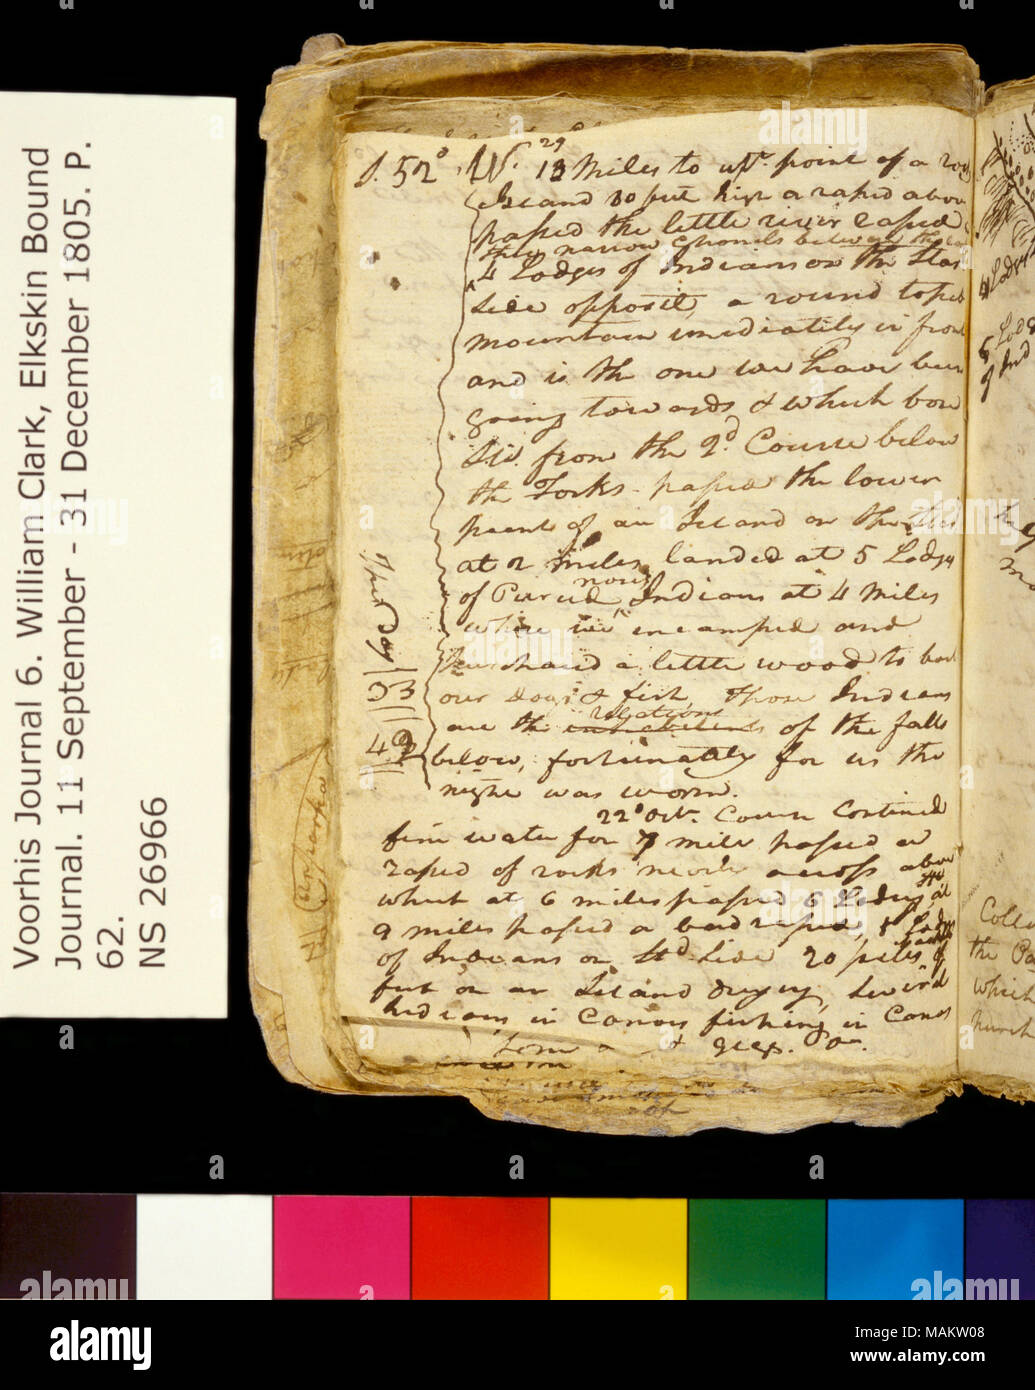 Voorhis Journal 6. William Clark, Elkskin Bound
Journal. 11 September - 31 December 1805. P.
62.
NS 26966
S. 52° W. 29
13 Miles to upr. point of a
Island
high a rapid above
passed the little river
narrow chanels between the
4 Lodges of Indians on the Star
Side opposit, a round toped
mountain imediately in front
and is the one we have been
going towards & which bore
S.W. from the 2d. Course below
the Forks passed the lower
point of an Island on the
at 2 miles landed at 5 Lodges
of Pierced nous Indians at 4 Miles
where we encamped and
purchased a little wood to boil
our Dogs & fish, those Indians
are the relations of the falls
below, fortunately for us the
night was worm.
Thursday
33
42
22d Octr. Course Continued
fine water for 7 mile passed a
raped of rocks nearly across above
which at 6 miles passed 6 Lodges, at
9 miles passed a bad raped, 5 Lodges
of Indians on Std. Side 20 piles of
fish on an Island drying, Several
Indians in Canoes fishing in Canoes
4 Lodges
5 Lod
of Ind
Colle
the Pa
which
alamy
Image ID: MAKW08
www.alamy.com